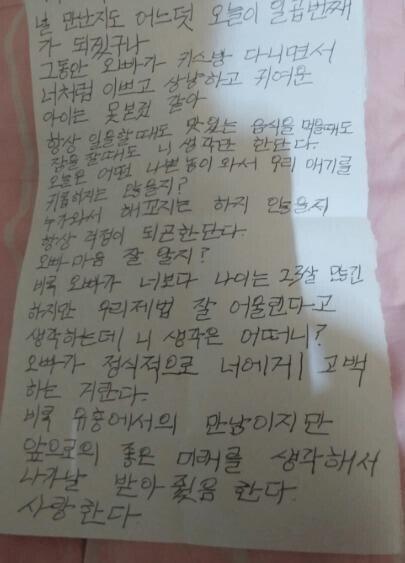 널 만난지도 어느덧 오늘이 일곱번째
가 되겠구나
그동안 오빠가 키스방 다니면서
너처럼 이쁘고 상냥하고 귀여운
아이는 못본것 같아
항상 일을할때도 맛있는 음식을 먹을때도
잠을 잘때도 니 생각만 한단다.
오늘은 어떤 나쁜놈이와서 우리 애기를
괴롭히지는 않을지?
누가와서 해꼬지는 하지 않을지
항상 걱정이 되곤한단다.
오빠 마음 잘 알지?
비록 오빠가 너보다 나이는 23살 많긴
하지만 우리제법 잘 어울린다고
생각하는데 니 생각은 어떠니?
오빠가 정식적으로 너에게 고백
하는 거란다.
비록 유흥에서의 만남이지만
앞으로의 좋은 미래를 생각해서
나가날 받아줬음 한다.
사랑한다